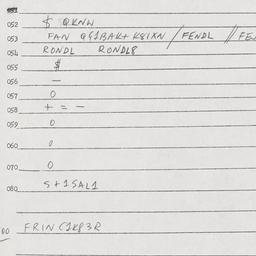 052 $ QKNW
053 FAN Q91BAK+ K81XN / FENDL // FE
054 RONDL RONDL8
055 $
056 —
057 O
058 + = -
059 O
060 O
070 O
080 S+1SAL1
00 FRIN C1KP3R